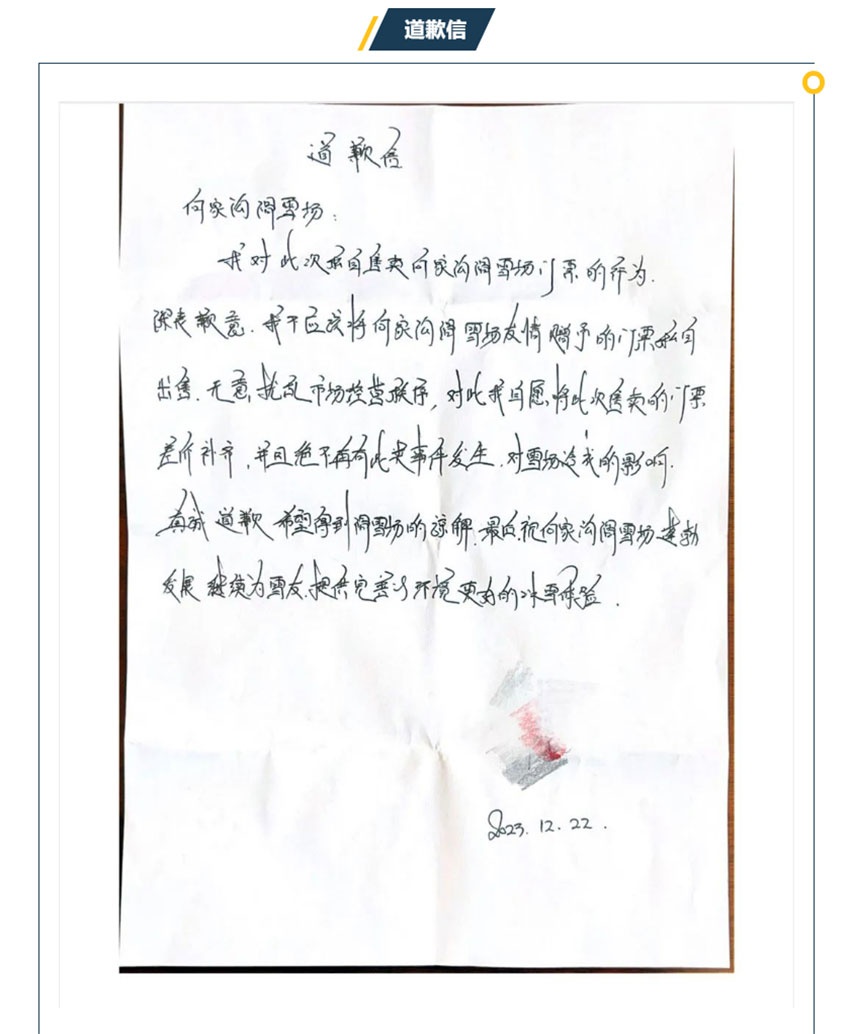 道歉信
道歉信
何家沟滑雪场:
我对此次私自售卖何家沟滑雪场门票的行为.
深表歉意. 我不应该将何家沟滑雪场友情赠予的门票私自
出售. 无意扰乱市场经营秩序, 对此我自愿将此次售卖的门票
差价补齐, 并且绝不再有此类事件发生. 对雪场造成的影响.
真诚道歉 希望得到滑雪场的谅解. 最后祝何家沟滑雪场蓬勃
发展 继续为雪友提供完善的环境更好的冰雪体验.
2023.12.22.